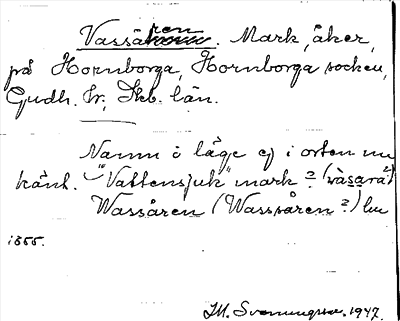 Vassåren. Mark, åker,
på Hornborga, Hornborga socken,
Gudh. hr, Skb. län.
Namn o läge ej i orten nu
känt. "Vattensjuk" mark? (våsara?)
Wassåren (Wassåren?) lm
1866.
M. Svenungsson. 1947.